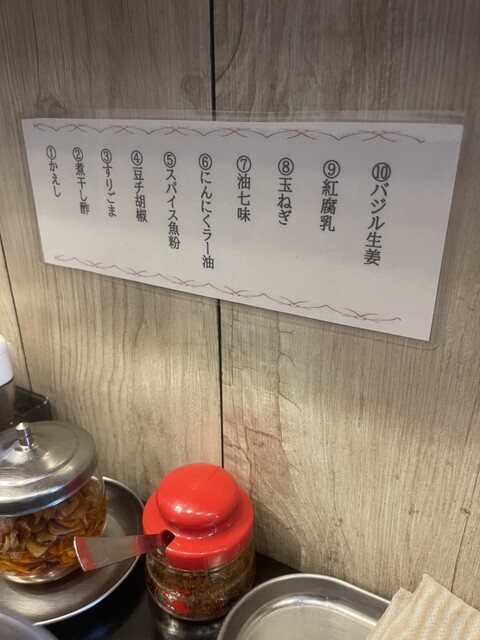 ①かえし
②煮干し酢
③すりごま
④豆チ胡椒
⑤スパイス魚粉
⑥にんにくラー油
⑦油七味
⑧玉ねぎ
⑨紅腐乳
⑩バジル生姜